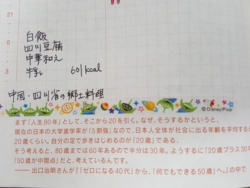 白飯
四川豆腐
中華和え
牛乳 601kcal
中国・四川省の郷土料理
まず「人生80年」として、そこから20を引く。なぜ、そうするかというと、
現在の日本の大学進学率が「5割強」なので、日本人全体が社会に出る年齢を平均すると
20歳くらい。自分の足で歩きはじめるのが「20歳」である。
そう考えると、80歳までは60年あるので半分は30年。ようするに「20歳プラス30年
「50歳が中間点」だと、考えているんです。